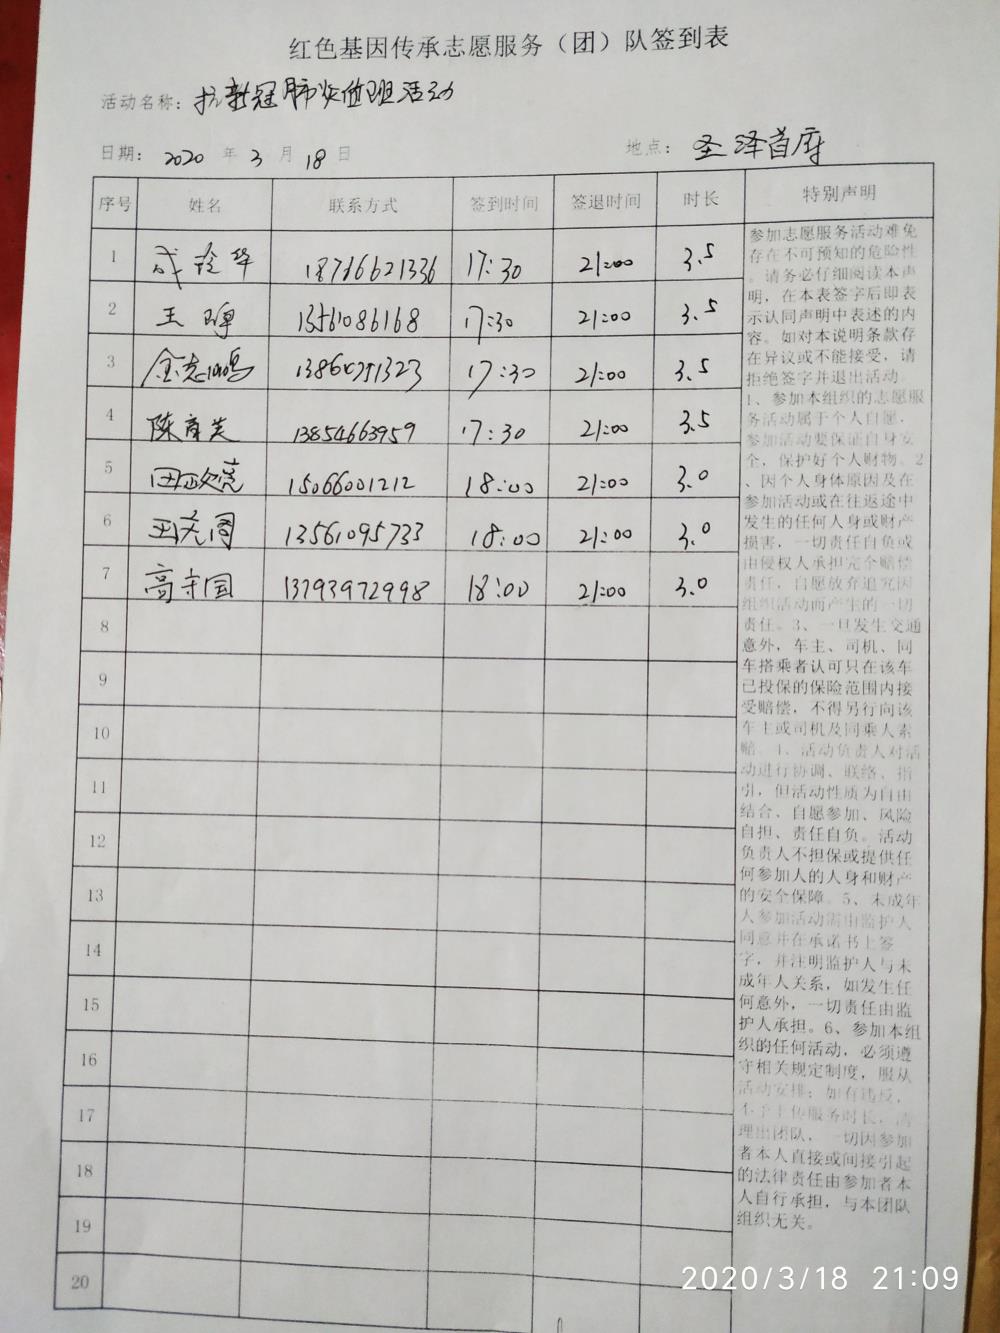 红色基因传承志愿服务（团）队签到表
活动名称：抗新冠肺炎值班活动
日期：2020年3月18日 地点：圣泽首府
序号 姓名 联系方式 签到时间 签退时间 时长 特别声明
1 17:30 21:00 3.5
2 王 13561086168 17:30 21:00 3.5
3 金志鸣 17:30 21:00 3.5
4 陈 13854663959 17:30 21:00 3.5
5 15066001212 18:00 21:00 3.0
6 13561095733 18:00 21:00 3.0
7 高守国 13793972998 18:00 21:00 3.0
8
9
10
11
12
13
14
15
16
17
18
19
20
参加志愿服务活动难免
存在不可预知的危险性
。请务必仔细阅读本声
明，在本表签字后即表
示认同声明中表述的内
容。如对本说明条款存
在异议或不能接受，请
拒绝签字并退出活动。
1、参加本组织的志愿服
务活动属于个人自愿，
参加活动要保证自身安
全，保护好个人财物。2
、因个人身体原因及在
参加活动或在往返途中
发生的任何人身或财产
损害，一切责任自负或
由侵权人承担完个赔偿
责任，自愿放弃追究因
组织活动而产生的一切
责任。3、一旦发生交通
意外，车主、司机、同
车搭乘者认可只在该车
已投保的保险范围内接
受赔偿，不得另行向该
车主或司机及同乘人素
赔。4、活动负责人对活
动进行协调、联络、指
引，但活动性质为自由
结合、自愿参加、风险
自担、责任自负。活动
负责人不担保或提供任
何参加人的人身和财产
的安全保障。5、未成年
人参加活动需由监护人
同意并在承诺书上签
字，并注明监护人与未
成年人关系，如发生任
何意外，一切责任由监
护人承担。6、参加本组
织的任何活动，必须遵
守相关规定制度，服从
活动安排；如有违反，
不予上传服务时长，清
理出团队，一切因参加
者本人直接或间接引起
的法律责任由参加者本
人自行承担，与本团队
组织无关。
2020/3/18 21:09